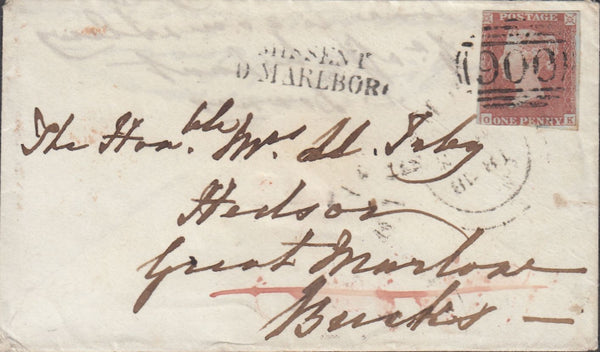 POSTAGE
900
O ONE PENNY K
MISSENT
TO MARLBORO
The Hon.ble Mrs Ll. Irby
Hedsor
Great Marlow
Bucks —